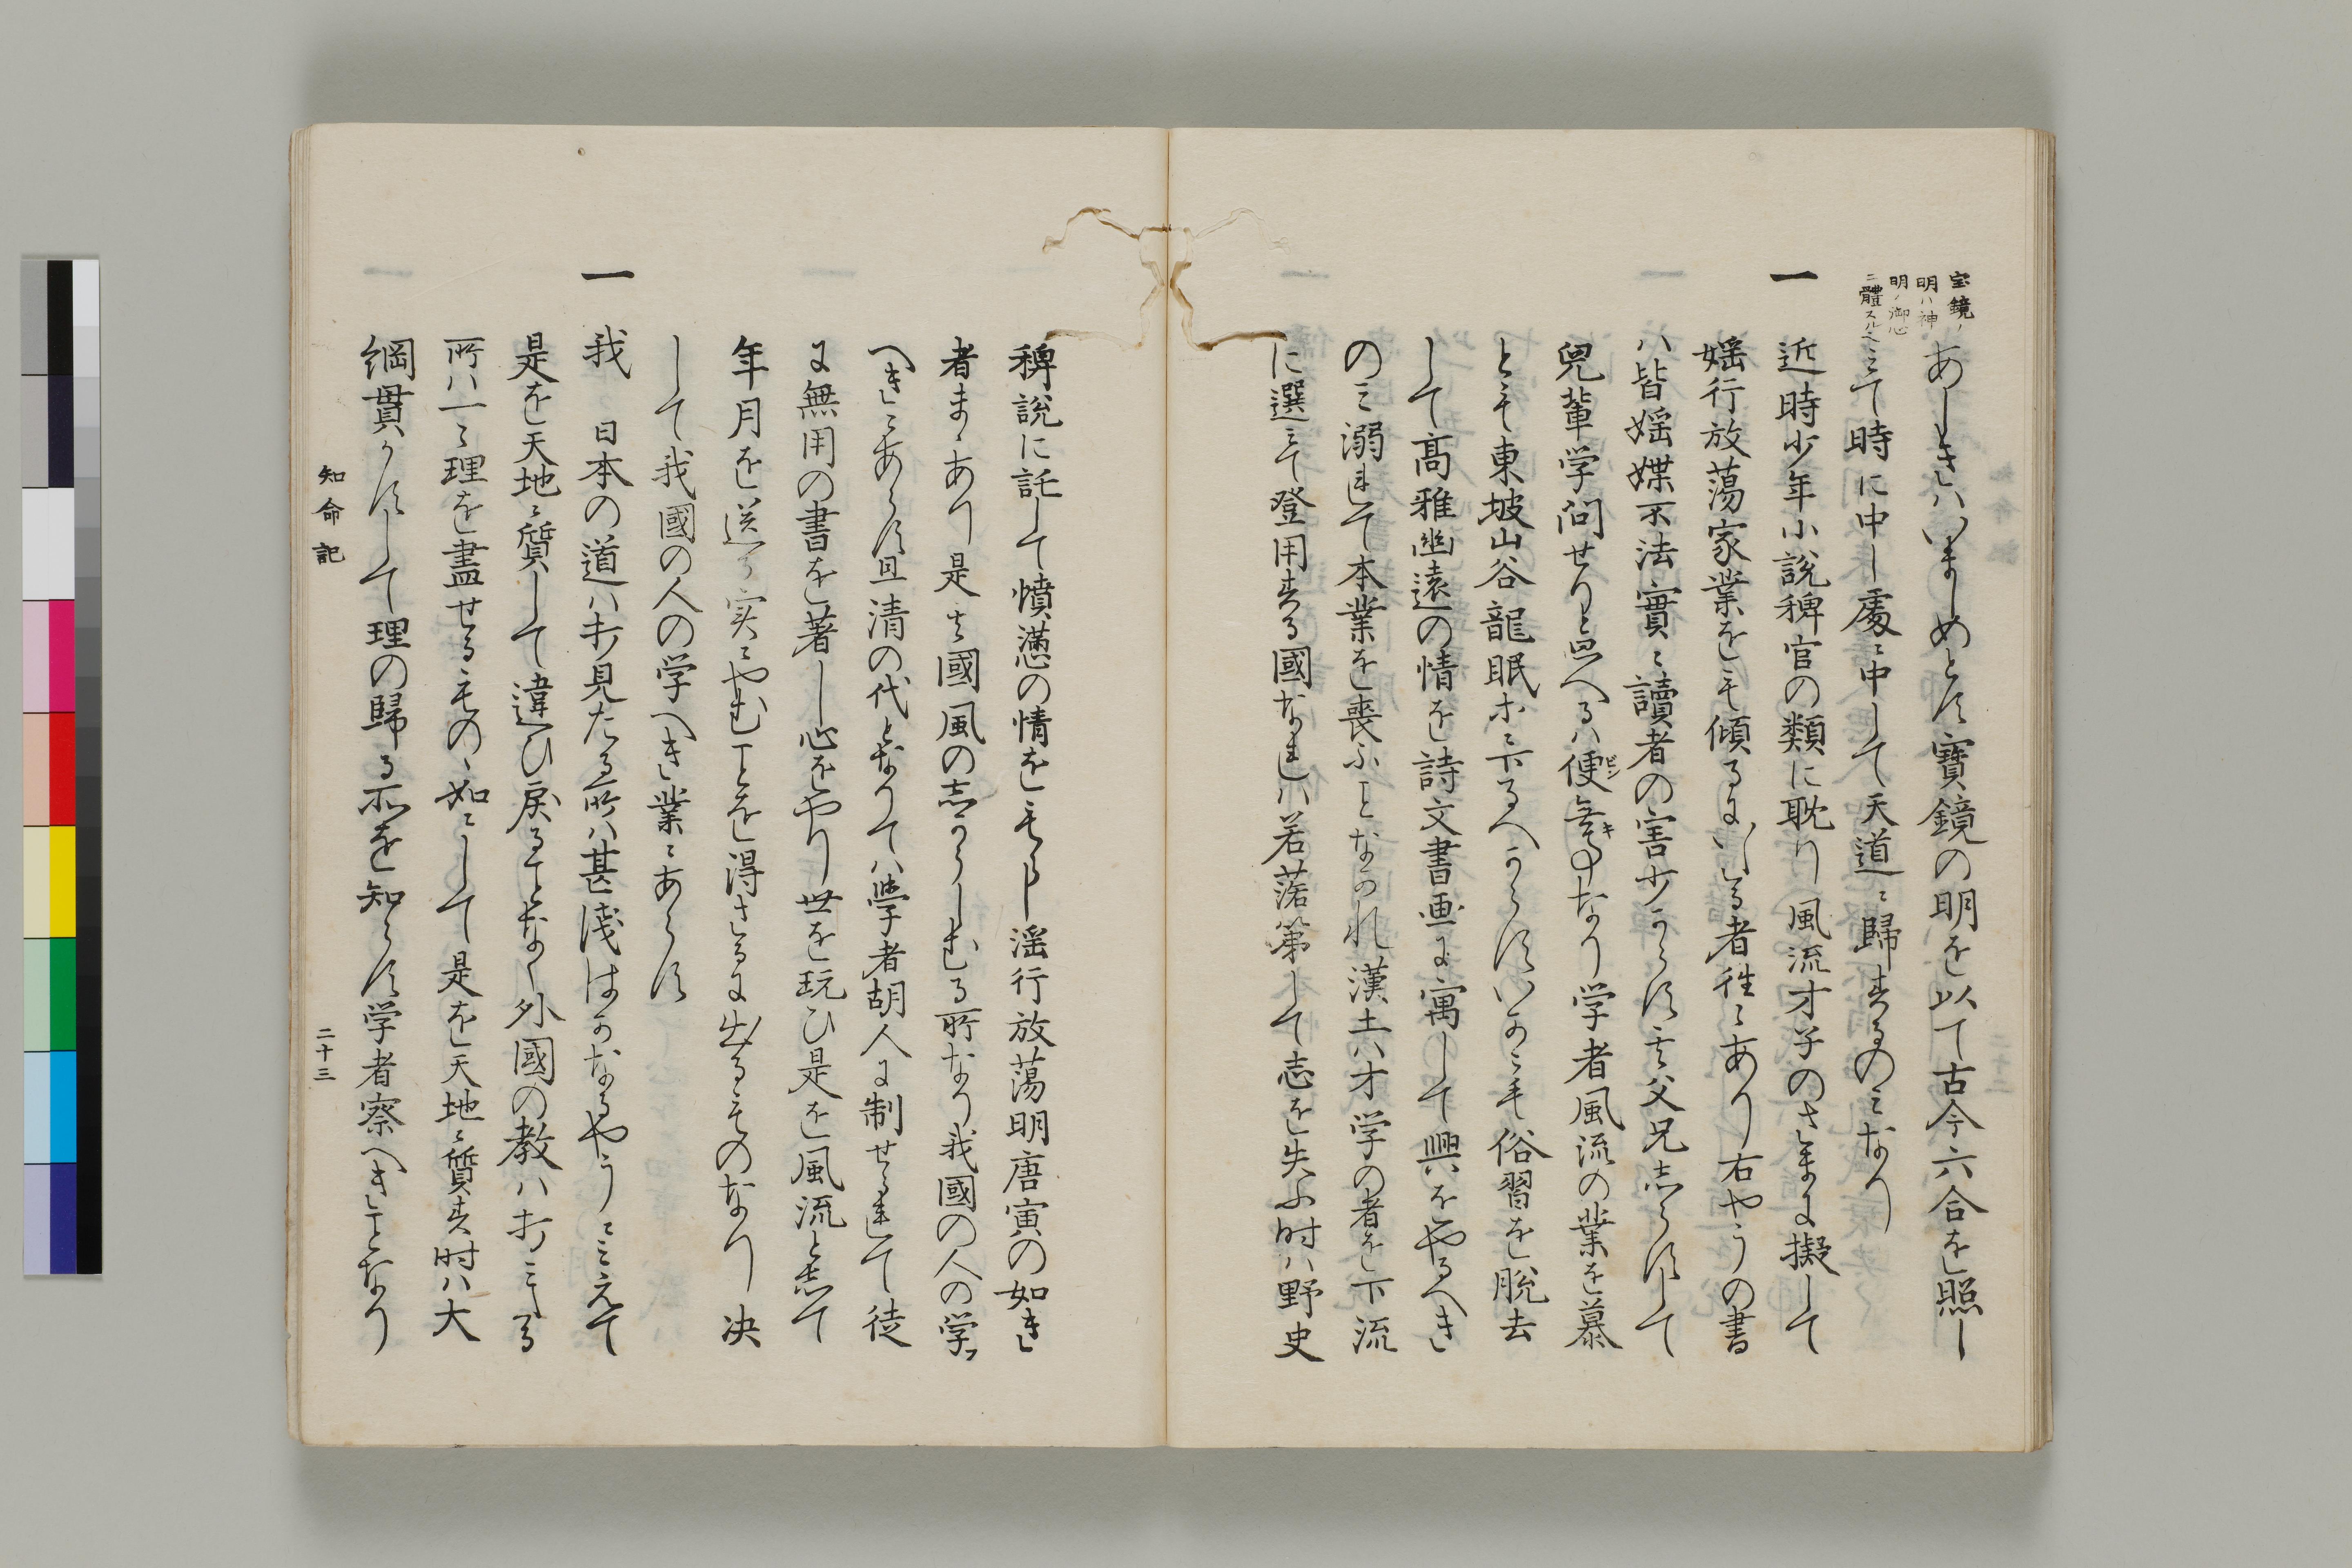 宝鏡ノ
明ハ神
明ノ御心
ニ體スルヘ
あしきハいましめとす寶鏡の明を以て古今六合を照し
みて時に中し處に中して天道に歸するのみなり
一 近時少年小説稗官の類に耽り風流才子のさまに擬して
婬行放蕩家業をも傾るにいたる者往々あり右やうの書
ハ皆婬媟不法實に讀者の害少からす其父兄志らすして
兒輩学問せりと思へるハ便無キ事なり学者風流の業を慕
とも東坡山谷龍眠等に下るへからすいかにも俗習を脱去
して高雅幽遠の情を詩文書画に寓して興をやるへき
のミ溺れて本業を喪ふことなかれ漢土ハ才学の者を下流
に選ミて登用する國なれハ若落第して志を失ふ时ハ野史
稗説に託して憤懣の情をもらし滛行放蕩明唐寅の如き
者まゝあり是其國風の志からしむる所なり我國の人の学フ
へきにあらす且清の代となりてハ學者胡人に制せられて徒
に無用の書を著し心をやり世を玩ひ是を風流と志て
年月を送る実にやむことを得さるに出るものなり决
して我國の人の学へき業にあらす
一 我 日本の道ハ打見たる所ハ甚浅はかなるやうにミえて
是を天地に質して違ひ戻ることなく外國の教ハ打ミたる
所ハ一々理を盡せるものゝ如くにして是を天地に質す时ハ大
綱貫からすして理の歸る所を知らす学者察へきことなり
知命記
二十三